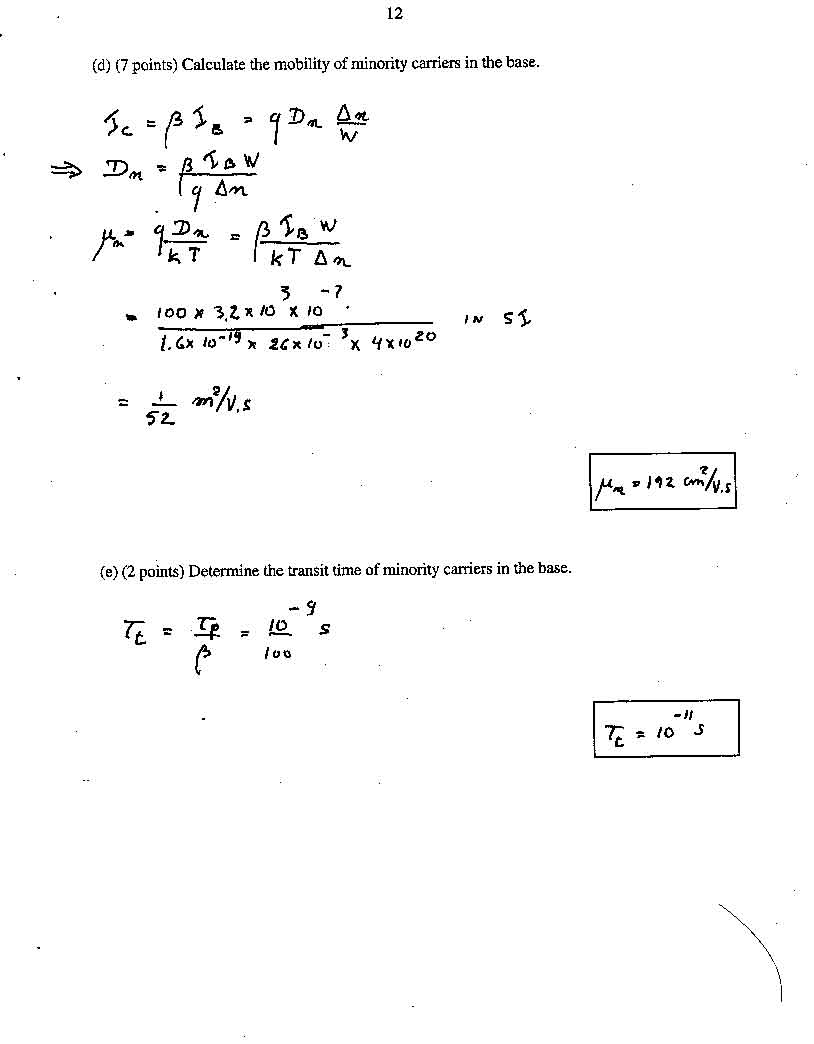 12
(d) (7 points) Calculate the mobility of minority carriers in the base.
J_C = β J_B = q D_n Δn/W
⇒ D_n = β J_B W / q Δn
μ_n = q D_n / kT = β J_B W / kT Δn
= 100 × 3.2 × 10^3 × 10^-7 / 1.6 × 10^-19 × 26 × 10^-3 × 4 × 10^20 IN SI
= 1/52 m^2/V.s
μ_n = 192 cm^2/V.s
(e) (2 points) Determine the transit time of minority carriers in the base.
τ_t = τ_p/β = 10^-9/100 s
τ_t = 10^-11 s